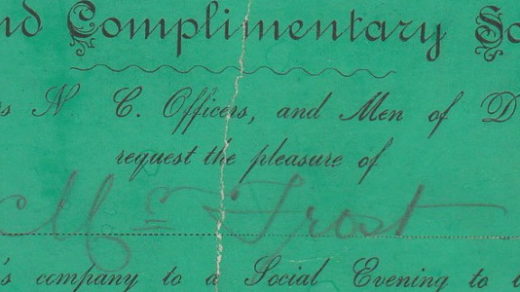 nd Complimentary So
rs N C. Officers, and Men of D
request the pleasure of
Mr Frost
's company to a Social Evening to b